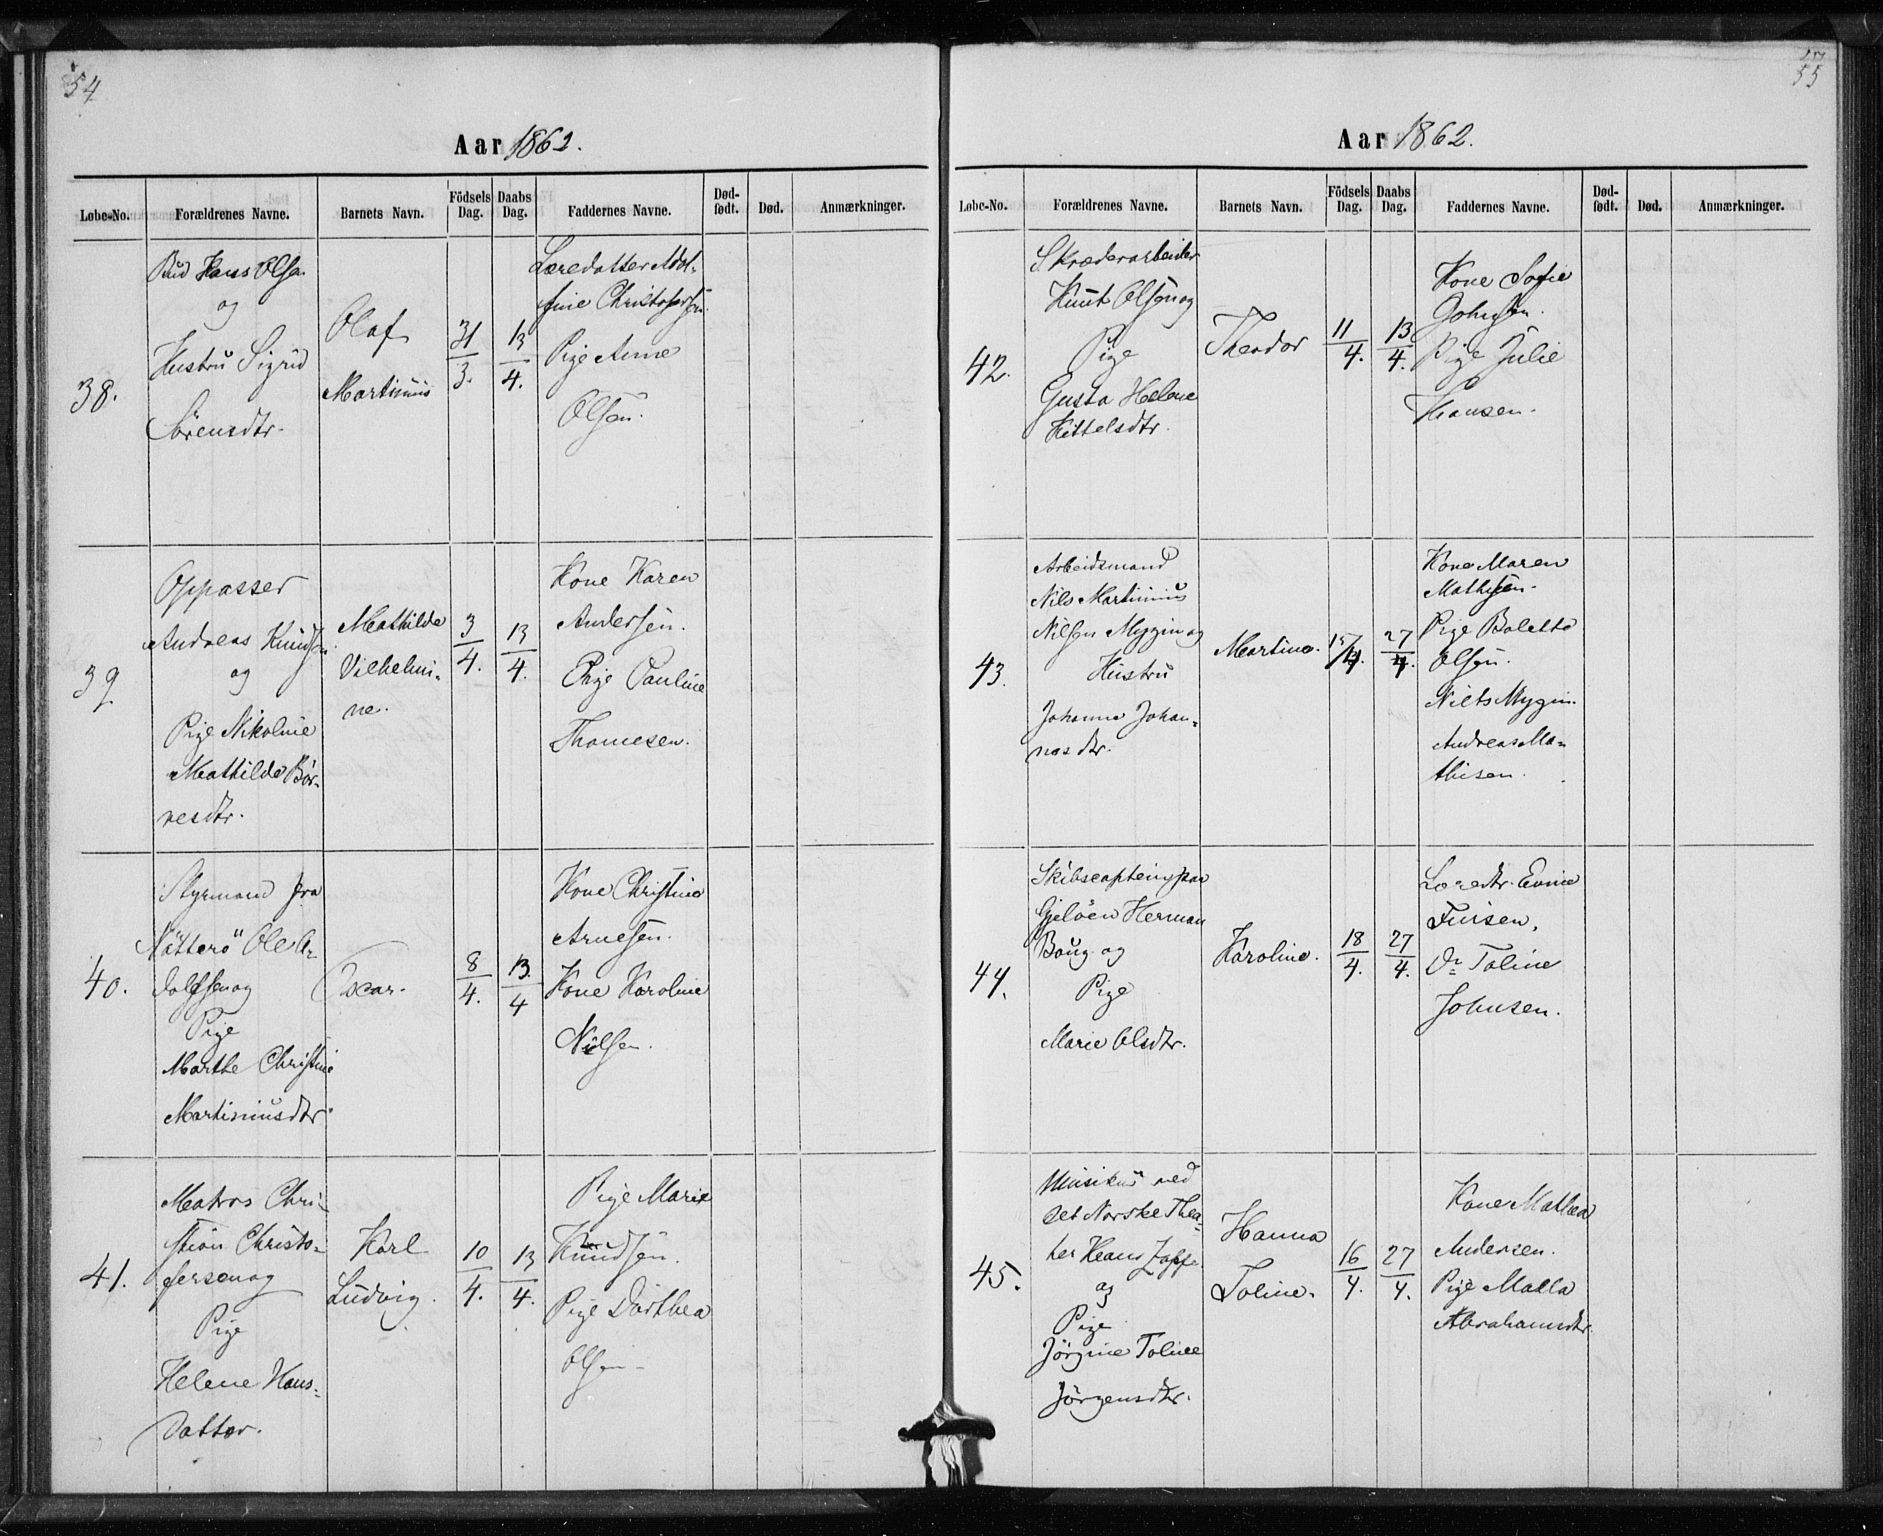 54
Aar 1862.
Løbe-No. Forældrenes Navne. Barnets Navn. Födsels Dag. Daabs Dag. Faddernes Navne. Død-født. Død. Anmærkninger.
38.
Bud Hans Olsen
og
Hustru Sigrid
Sørensdtr.
Olaf
Martinius
31/3.
13/4.
Læredatter Adol-
fine Christofersen.
Pige Anne
Olsen.
39
Oppasser
Andreas Knudsen
og
Pige Nikoline
Mathilde Bør-
resdtr.
Mathilde
Vilhelmi-
ne.
3/4.
13/4.
Kone Karen
Andersen.
Pige Pauline
Thomesen.
40.
Styrmand fra
Nøtterø Ole A-
dolfsen og
Pige
Marthe Christine
Martiniusdtr
Oscar.
8/4.
13/4
Kone Christine
Arnesen.
Kone Karoline
Nilsen.
41.
Matros Chri-
stian Christo-
fersen og
Pige
Helene Hans-
datter.
Karl
Ludvig.
10/4.
13/4.
Pige Marie
Knudsen.
Pige Dorthea
Olsen
55
Aar 1862.
Løbe-No. Forældrenes Navne. Barnets Navn. Födsels Dag. Daabs Dag. Faddernes Navne. Død-født. Død. Anmærkninger.
42.
Skræderarbeider
Knut Olsen og
Pige
Gusta Helene
Kittelsdtr.
Theodor
11/4.
13/4.
Kone Sofie
Johnsen.
Pige Julie
Hansen.
43.
Arbeidsmand
Nils Martinius
Nilsen Myggin og
Hustru
Johanne Johan-
nesdtr.
Martine.
15/4.
27/4.
Kone Maren
Mathisen.
Pige Bolette
Olsen.
Niels Mygin.
Andreas Ma-
thisen.
44.
Skibscaptein paa
Gjeløen Herman
Baug og
Pige
Marie Olsdtr.
Karoline.
18/4.
27/4.
Læredtr.
Do Toline
Johnsen.
45.
Musikus ved
det Norske Thea-
ter Hans
og
Pige
Jørgine Toline
Jørgensdtr.
Hanna
Toline.
16/4.
27/4.
Kone Mathea
Andersen.
Pige Malla
Abrahamsdtr.